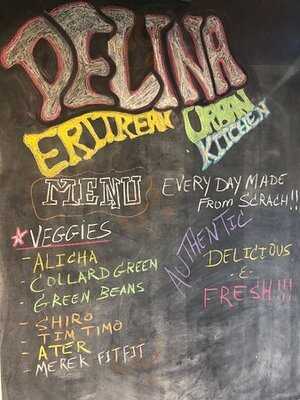 DELINA
ERITREAN URBAN
KITCHEN
MENU
EVERY DAY MADE
FROM SCRACH!!
* VEGGIES
- ALICHA
- COLLARD GREEN
- GREEN BEANS
- SHIRO
TIM TIMO
- ATER
- MEREK FITFIT
AUTHENTIC
DELICIOUS
- & -
FRESH!!!